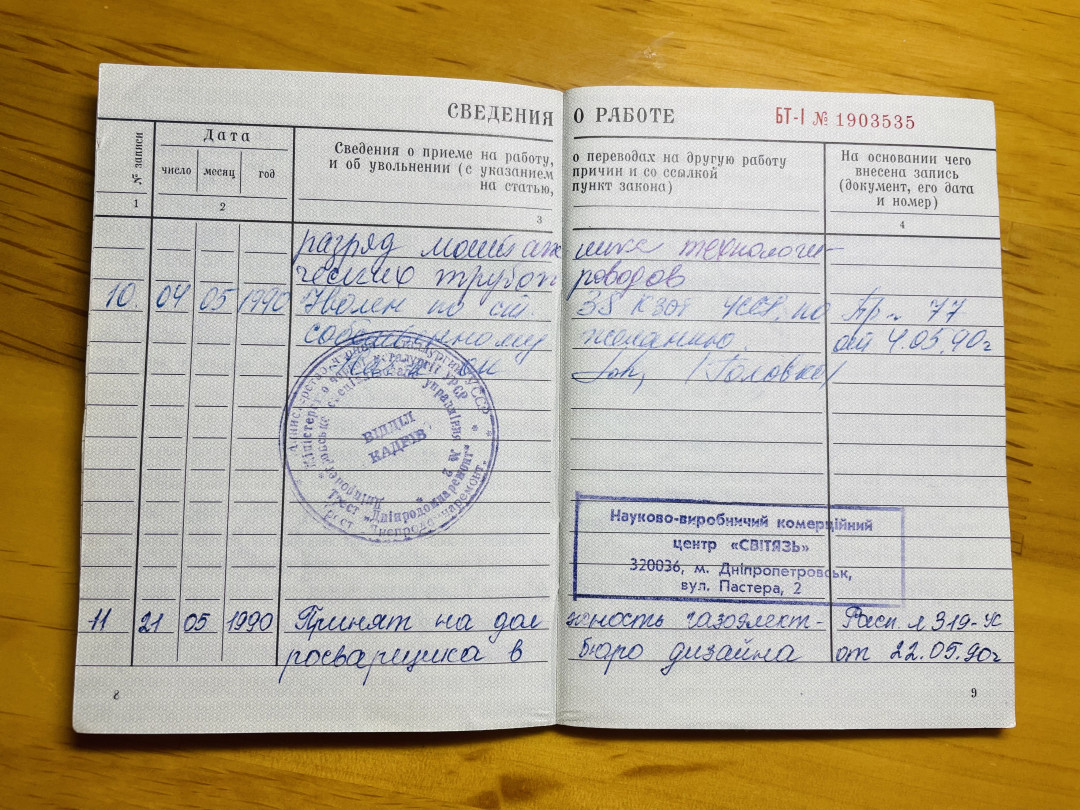 СВЕДЕНИЯ О РАБОТЕ БТ-I № 1903535
№ записи
Дата
число месяц год
Сведения о приеме на работу, о переводах на другую работу
и об увольнении (с указанием причин и со ссылкой
на статью, пункт закона)
На основании чего
внесена запись
(документ, его дата
и номер)
1 2 3 4
разряд монтажника технологи-
ческих трубопроводов
10. 04 05 1990 Уволен по ст. 38 КЗоТ УССР, по Пр. 77
собственному желанию. от 4.05.90г
Головко
Міністерство чорної металургії УРСР
управління № 2
Трест „Дніпродомнаремонт"
Трест „Днепродомнаремонт"
ВІДДІЛ
КАДРІВ
Науково-виробничий комерційний
центр «СВІТЯЗЬ»
320036, м. Дніпропетровськ,
вул. Пастера, 2
11 21 05 1990 Принят на должность газоэлект- Расп. 319-К
росварщика в бюро дизайна от 22.05.90г
8 9